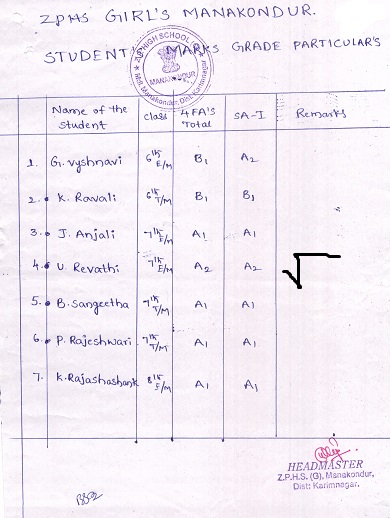 ZPHS GIRL'S MANAKONDUR.
STUDENT MARKS GRADE PARTICULAR'S
Name of the Student class 4 FA's Total SA-I Remarks
1. G. Vyshnavi 6th E/M B1 A2
2. K. Ravali 6th T/M B1 B1
3. J. Anjali 7th E/M A1 A1
4. U. Revathi 7th E/M A2 A2
5. B. Sangeetha 7th T/M A1 A1
6. P. Rajeshwari 7th T/M A1 A1
7. K. Rajashashank 8th E/M A1 A1
HEADMASTER
Z.P.H.S. (G), Manakondur,
Dist: Karimnagar.